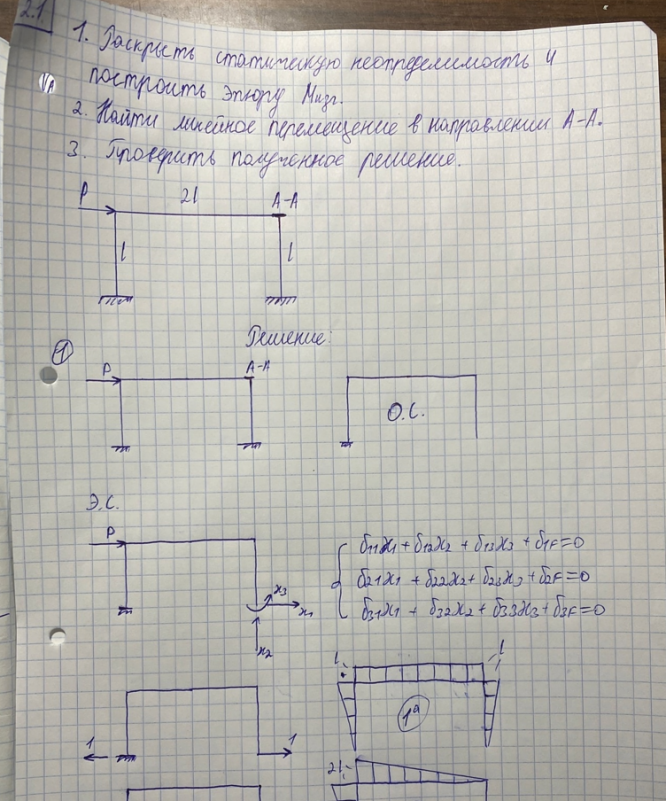 2.1.
1. Раскрыть статическую неопределимость и
построить эпюру Mизг.
2. Найти линейное перемещение в направлении A-A.
3. Проверить полученное решение.
P 2l A-A
l l
Решение:
1
P A-A
О.С.
Э.С.
P
x3
x1
x2
δ11x1 + δ12x2 + δ13x3 + δ1F=0
δ21x1 + δ22x2 + δ23x3 + δ2F=0
δ31x1 + δ32x2 + δ33x3 + δ3F=0
l l
1 1
2l